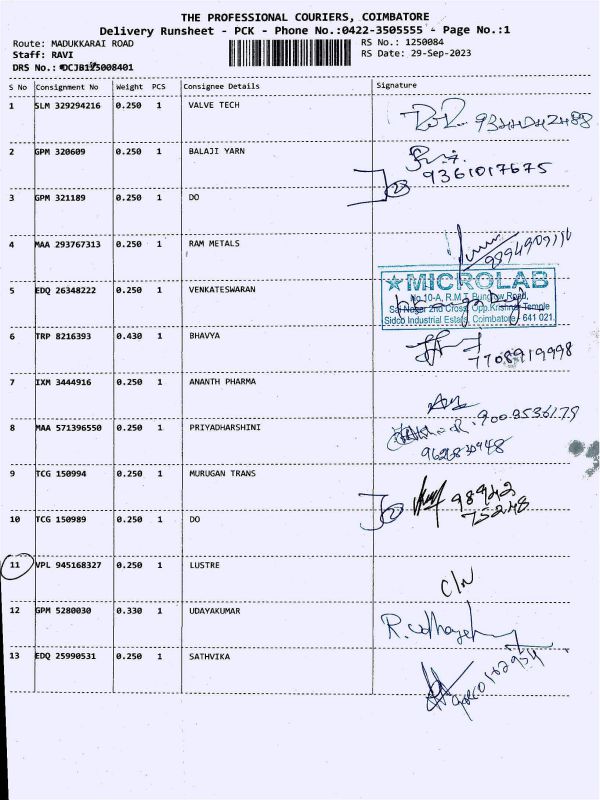 THE PROFESSIONAL COURIERS, COIMBATORE
Delivery Runsheet - PCK - Phone No.:0422-3505555 - Page No.:1
Route: MADUKKARAI ROAD RS No.: 1250084
Staff: RAVI RS Date: 29-Sep-2023
DRS No.:
S No Consignment No Weight PCS Consignee Details Signature
1 SLM 329294216 0.250 1 VALVE TECH
2 GPM 320609 0.250 1 BALAJI YARN
9361017675
3 GPM 321189 0.250 1 DO
4 MAA 293767313 0.250 1 RAM METALS
MICROLAB
5 EDQ 26348222 0.250 1 VENKATESWARAN
No.10-A, R.M.T. Bunglow Road,
Sai Nagar 2nd Cross, Opp.Krishna Temple
Sidco Industrial Estate, Coimbatore - 641 021.
6 TRP 8216393 0.430 1 BHAVYA
7708919998
7 IXM 3444916 0.250 1 ANANTH PHARMA
8 MAA 571396550 0.250 1 PRIYADHARSHINI
9 TCG 150994 0.250 1 MURUGAN TRANS
98942
75248
10 TCG 150989 0.250 1 DO
11 VPL 945168327 0.250 1 LUSTRE
C/N
12 GPM 5280030 0.330 1 UDAYAKUMAR
13 EDQ 25990531 0.250 1 SATHVIKA